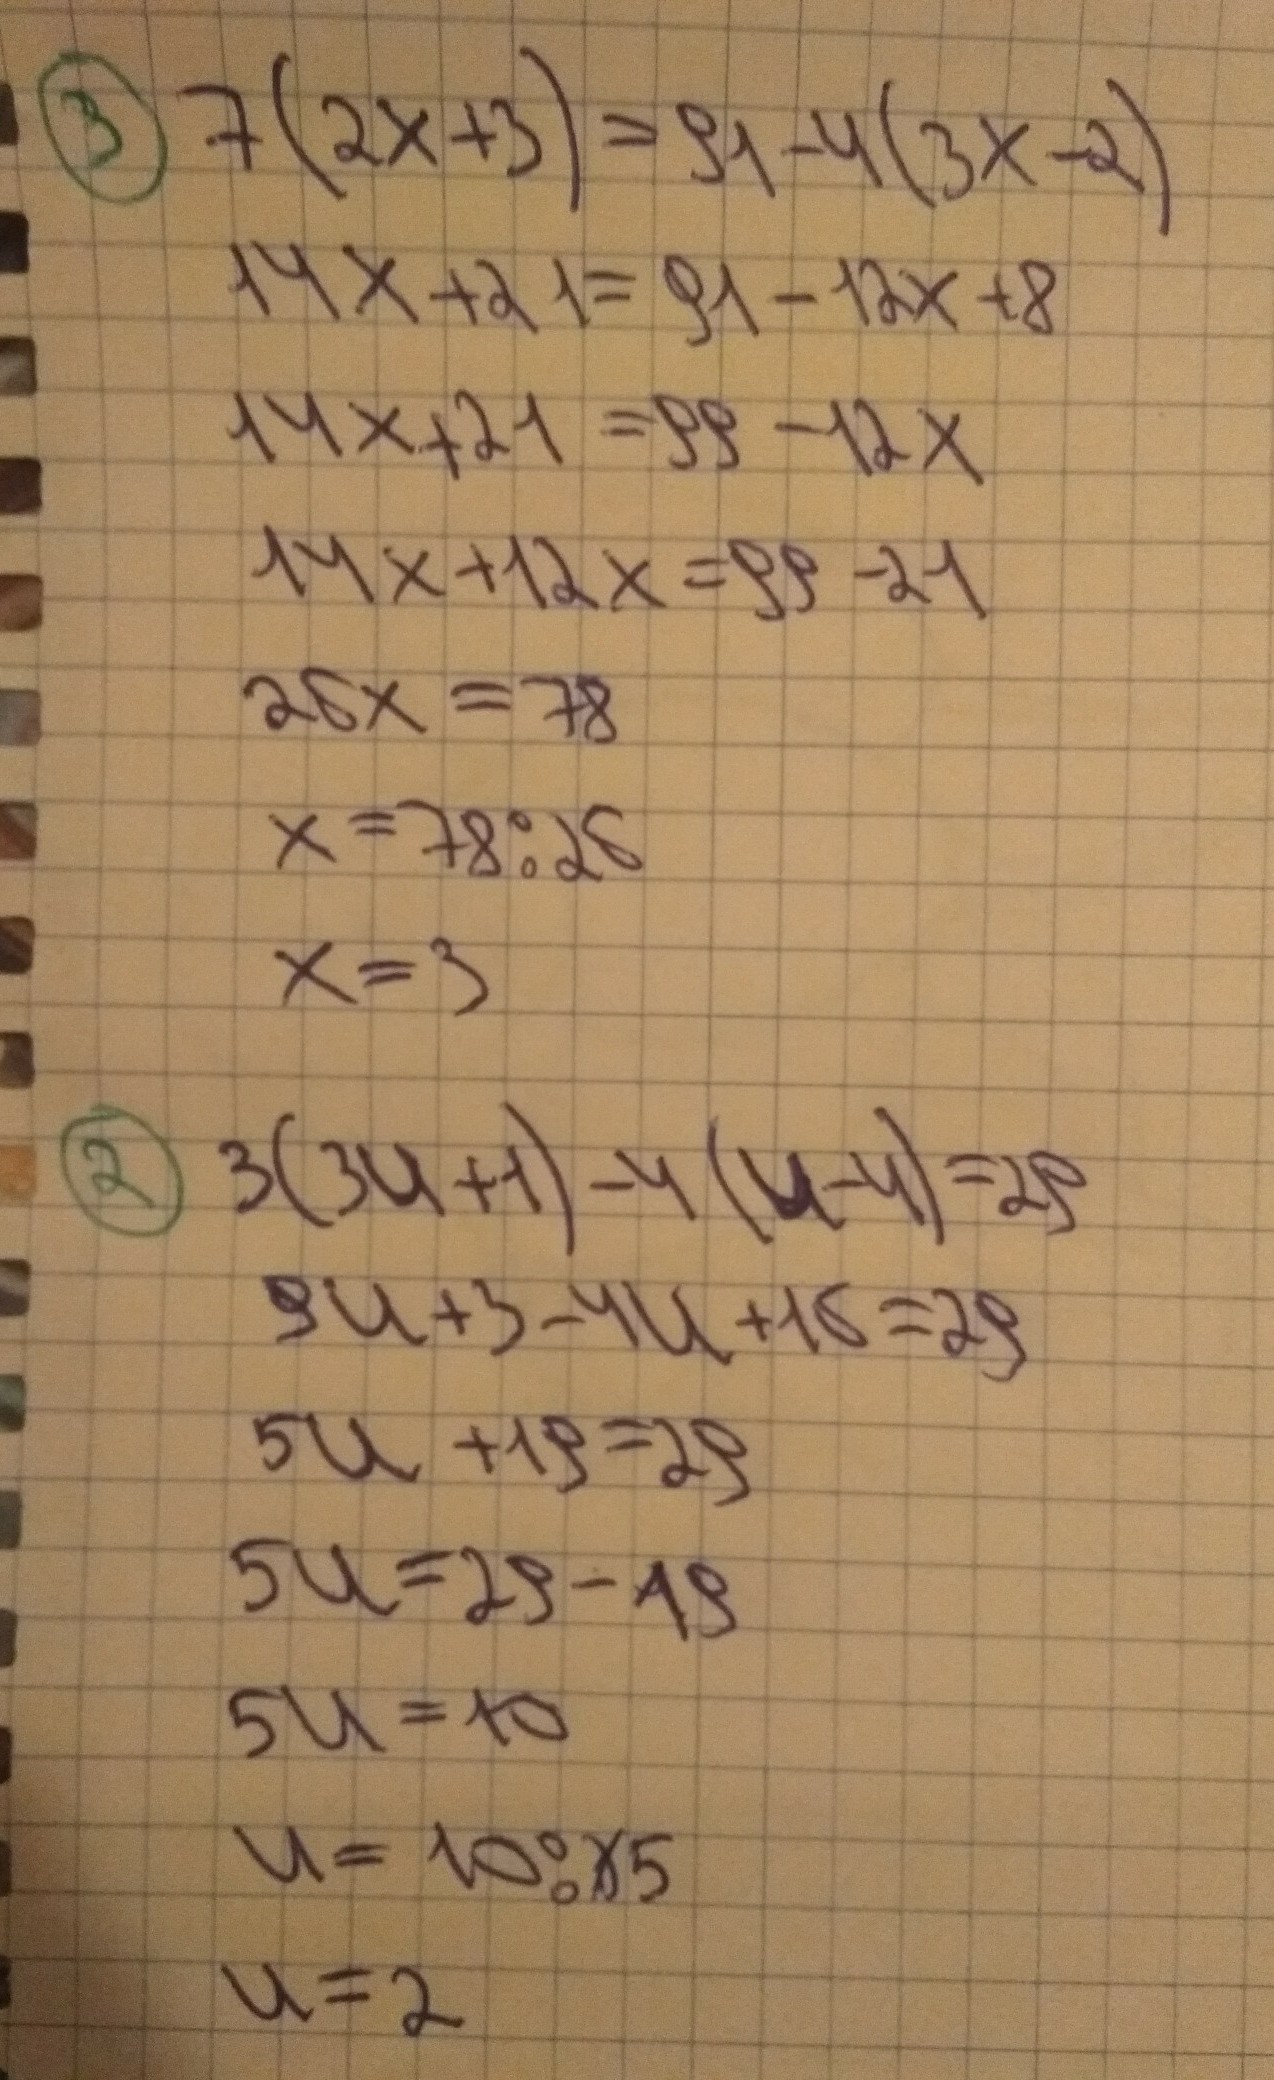 3 7(2x+3)=91-4(3x-2)
14x+21=91-12x+8
14x+21=99-12x
14x+12x=99-21
26x=78
x=78:26
x=3
2 3(3u+1)-4(u-4)=29
9u+3-4u+16=29
5u+19=29
5u=29-19
5u=10
u=10:5
u=2